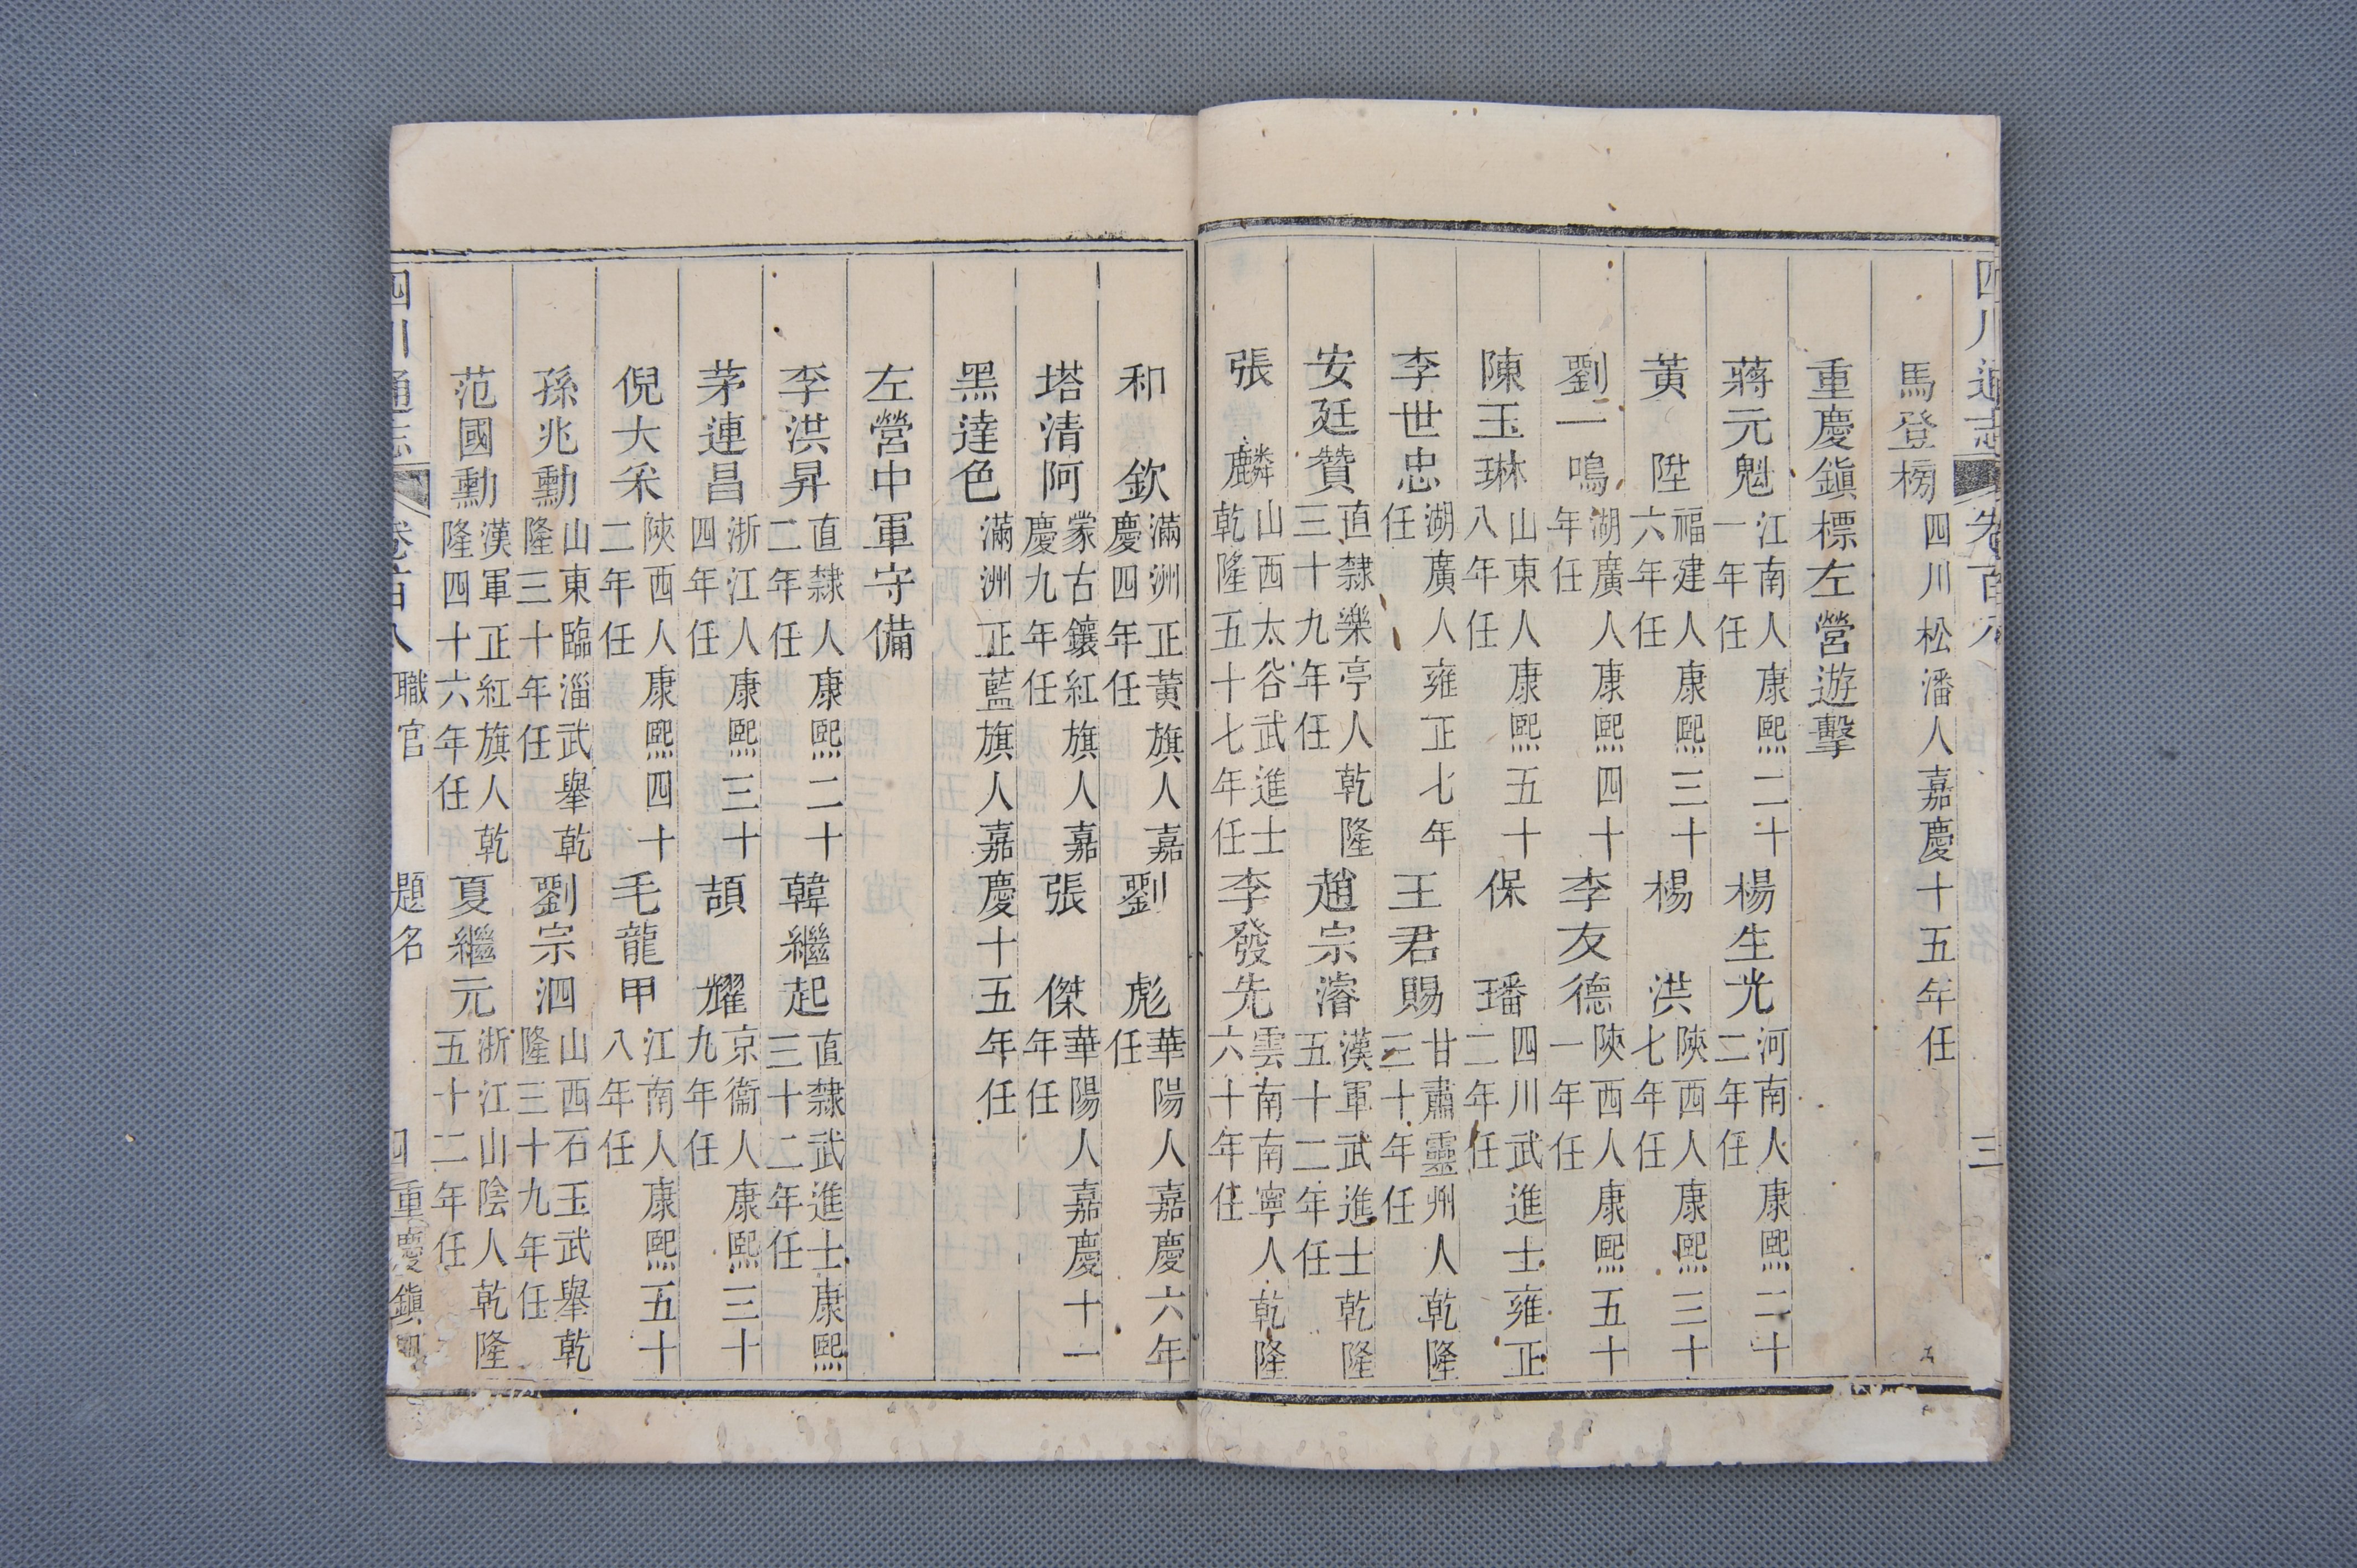 四川通志 卷百八 題名 三
馬登榜 四川松潘人嘉慶十五年任
重慶鎮標左營遊擊
蔣元魁 江南人康熙二十一年任 楊生光 河南人康熙二十二年任
黃陞 福建人康熙三十六年任 楊洪 陝西人康熙三十七年任
劉一鳴 湖廣人康熙四十年任 李友德 陝西人康熙五十一年任
陳玉琳 山東人康熙五十八年任 保璠 四川武進士雍正二年任
李世忠 湖廣人雍正七年任 王君賜 甘肅靈州人乾隆三十年任
安廷贊 直隸樂亭人乾隆三十九年任 趙宗濬 漢軍武進士乾隆五十二年任
張麟 山西太谷武進士乾隆五十七年任 李發先 雲南南寧人乾隆六十年任
和欽 滿洲正黃旗人嘉慶四年任 劉彪 華陽人嘉慶六年任
塔清阿 蒙古鑲紅旗人嘉慶九年任 張傑 華陽人嘉慶十一年任
黑達色 滿洲正藍旗人嘉慶十五年任
左營中軍守備
李洪昇 直隸人康熙二十二年任 韓繼起 直隸武進士康熙三十二年任
茅連昌 浙江人康熙三十四年任 頡耀 京衞人康熙三十九年任
倪大釆 陝西人康熙四十二年任 毛龍甲 江南人康熙五十八年任
孫兆勳 山東臨淄武舉乾隆三十年任 劉宗泗 山西石玉武舉乾隆三十九年任
范國勳 漢軍正紅旗人乾隆四十六年任 夏繼元 浙江山陰人乾隆五十二年任
四川通志 卷百八 職官 題名 四 重慶鎮